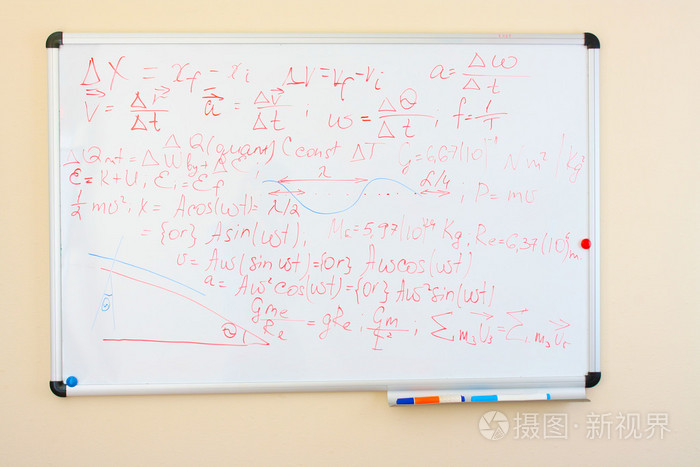 ΔX = x_f - x_i ΔV = v_f - v_i a = Δω/Δt
v⃗ = Δr⃗/Δt a⃗ = Δv⃗/Δt ; ω = Δθ/Δt , f = 1/T
Δ Q(quant) C const ΔT G = 6,67(10 N m² / Kg²
ΔQ = ΔW by + ΔE i
λ
E = K + U, E_i = E_f λ/4 ; P = mv
½ mv², x = Acos(ωt) = λ/2
= {or} Asin(ωt), = 5,97(10²⁴ Kg ; Re = 6,37(10⁶ m
v = Aω(sin ωt) = {or} Aωcos(ωt)
a = Aω²cos(ωt) = {or} Aω²sin(ωt)
Gme/Re = gRe ; Gm/r² ; Σ m₃v⃗ = Σ m₃v⃗
θ
摄图·新视界